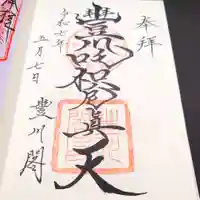 奉拝
豊川吒枳尼眞天
令和七年
五月七日
豊川閣